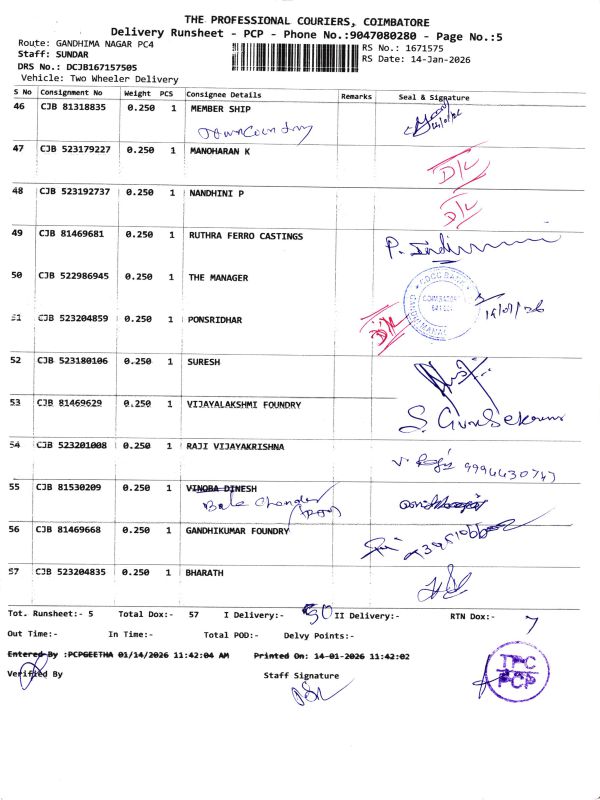 THE PROFESSIONAL COURIERS, COIMBATORE
Delivery Runsheet - PCP - Phone No.:9047080280 - Page No.:5
Route: GANDHIMA NAGAR PC4 RS No.: 1671575
Staff: SUNDAR RS Date: 14-Jan-2026
DRS No.: DCJB167157505
Vehicle: Two Wheeler Delivery
S No Consignment No Weight PCS Consignee Details Remarks Seal & Signature
46 CJB 81318835 0.250 1 MEMBER SHIP
47 CJB 523179227 0.250 1 MANOHARAN K D/L
48 CJB 523192737 0.250 1 NANDHINI P D/L
49 CJB 81469681 0.250 1 RUTHRA FERRO CASTINGS
50 CJB 522986945 0.250 1 THE MANAGER
51 CJB 523204859 0.250 1 PONSRIDHAR D/L
52 CJB 523180106 0.250 1 SURESH
53 CJB 81469629 0.250 1 VIJAYALAKSHMI FOUNDRY
54 CJB 523201008 0.250 1 RAJI VIJAYAKRISHNA
55 CJB 81530209 0.250 1 VINOBA DINESH
56 CJB 81469668 0.250 1 GANDHIKUMAR FOUNDRY
57 CJB 523204835 0.250 1 BHARATH
Tot. Runsheet:- 5 Total Dox:- 57 I Delivery:- 50 II Delivery:- RTN Dox:- 7
Out Time:- In Time:- Total POD:- Delvy Points:-
Entered By :PCPGEETHA 01/14/2026 11:42:04 AM Printed On: 14-01-2026 11:42:02
Verified By Staff Signature
TPC
PCP